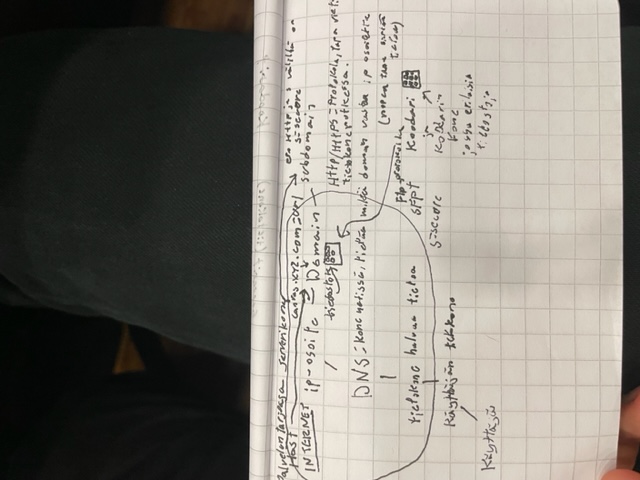 Palvelontarjoaja serverikone
Host
INTERNET
canvas.xyz.com = url
ero Http ja s välillä on
s=secure
ip-osoite
Domain
subdomain
tiedostot
Http/HTTPS = Protokola, tapa
tietokone
DNS = kone netissä, tietää mikä domain vastaa ip osoitetta
(nopea tapa
tietoa)
tietokone haluaa tietoa
Ftp-protokolla
SFPT
s=secure
Koodari
ja
Koodarin
kone
jossa erilaisia
tiedostoja
Käyttäjän tietokone
Käyttäjä